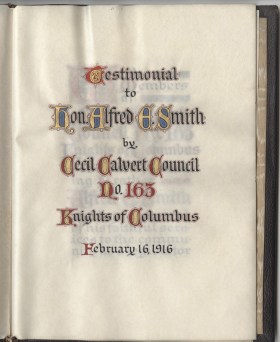 Testimonial
to
Hon. Alfred E. Smith
by
Cecil Calvert Council
No. 163
Knights of Columbus
February 16, 1916